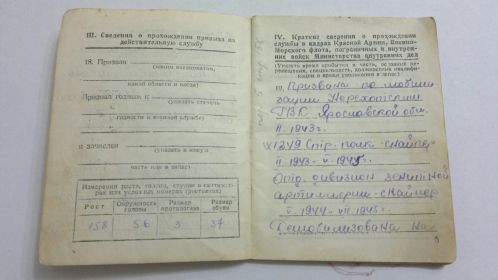 III. Сведения о прохождении призыва на
действительную службу
18. Призван
(каким военкоматом,
какой области и когда)
Признан годным к
(указать степень
годности к военной службе)
и зачислен
(указать в какую
часть или в запас)
Измерения роста, головы, ступни в сантимет-
рах или условных номерах (ростовка)
Рост
Окружность головы
Размер противогаза
Размер обуви
158 56 3 37
IV. Краткие сведения о прохождении
службы в кадрах Красной Армии, Военно-
Морского флота, пограничных и внутрен-
них войск Министерства внутренних дел
(Указать время прибытия в части, основные пе-
ремещения, специальность, должностная квалифи-
кация и время увольнения в запас)
19. Призвана по мобили-
зации Нерехотским
ГВК Ярославской обл.
II. 1943 г.
1249 Стр. полк - снайпер
II. 1943 - V.
Отд. дивизион зенитной
артиллерии - снайпер
V. 1944 - VII. 1945 г.
Демобилизована на
9